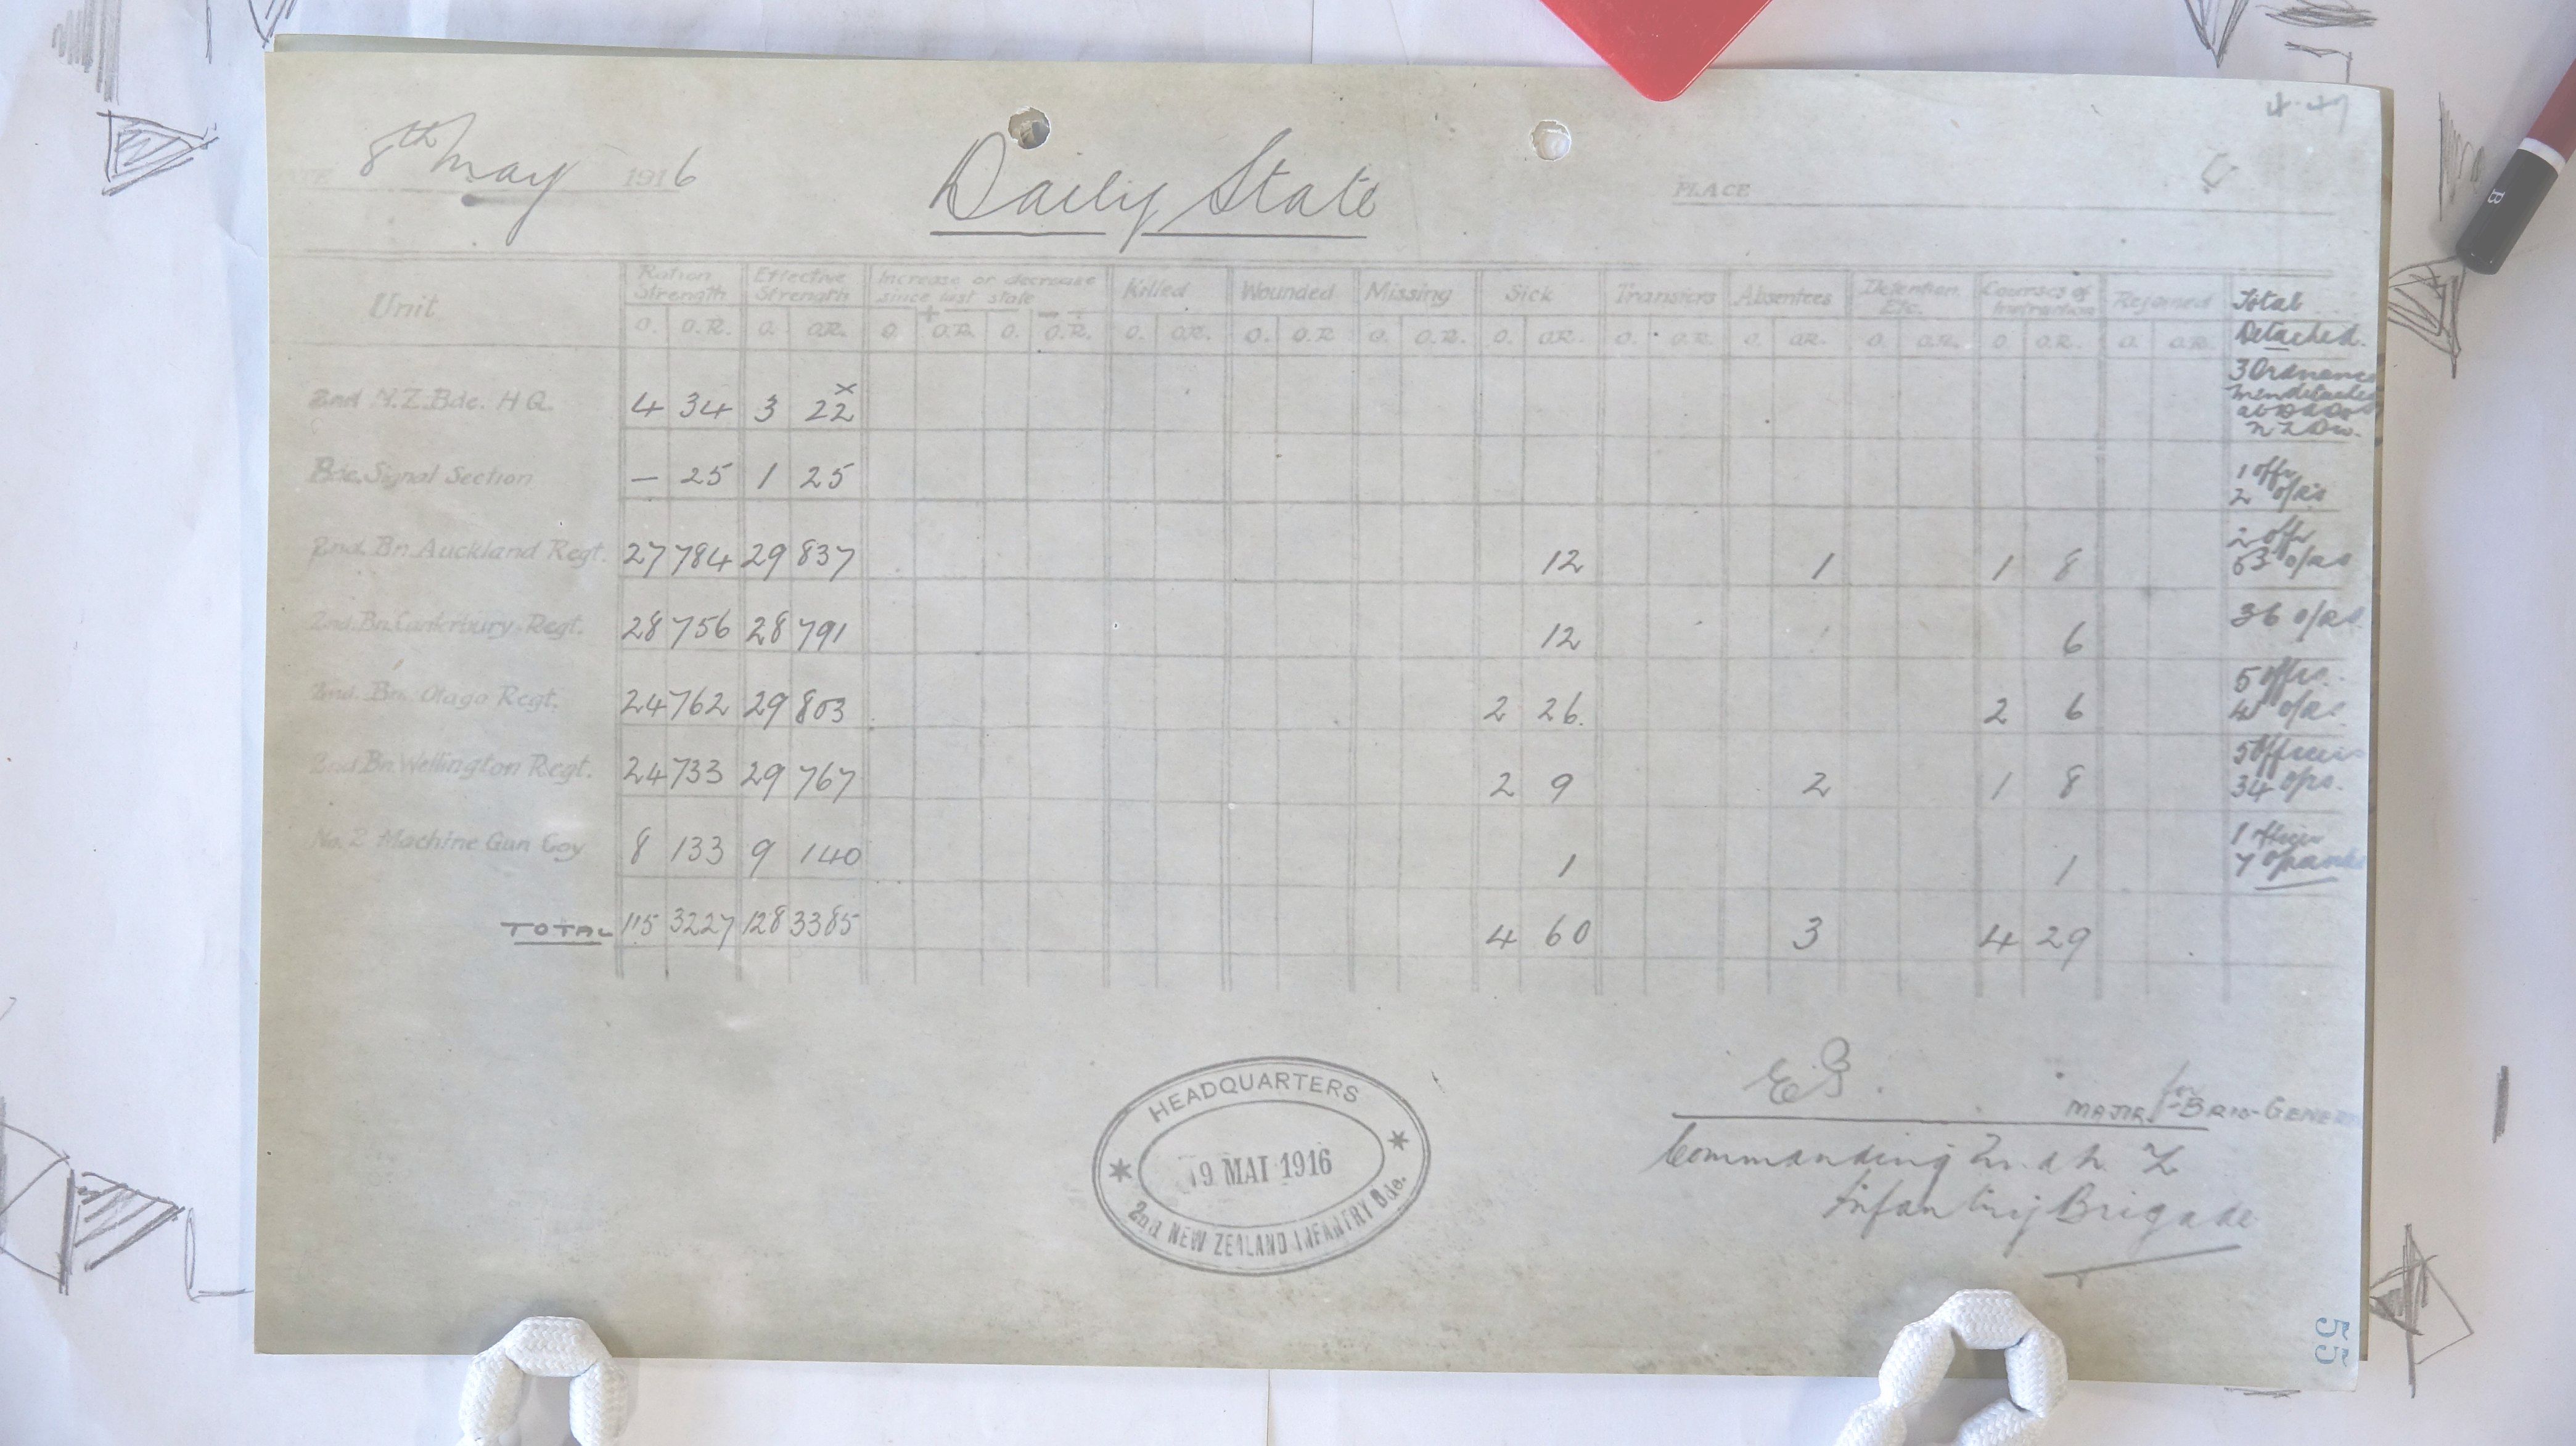 4-47
8th May 1916
Daily State
PLACE
Unit
Ration Strength
Effective Strength
Increase or decrease since last state
+ -
Killed
Wounded
Missing
Sick
Transfers
Absentees
Detention Etc.
Courses of Instruction
Rejoined
Total Detached.
O. O.R. O. O.R. O. O.R. O. O.R. O. O.R. O. O.R. O. O.R. O. O.R. O. O.R. O. O.R. O. O.R. O. O.R. O. O.R.
2nd N.Z. Bde. H.Q. 4 34 3 22 x
3 Ordnance
men detached
at DADOS
N Z Div.
Bde. Signal Section — 25 1 25
1 offr
2 o/Rs
2nd. Bn. Auckland Regt. 27 784 29 837 12 1 1 8
2 offr
63 o/Rs
2nd. Bn. Canterbury Regt. 28 756 28 791 12 6 36 o/Rs
2nd. Bn. Otago Regt. 24 762 29 803 2 26. 2 6
5 offrs.
41 o/Rs
2nd Bn. Wellington Regt. 24 733 29 767 2 9 2 1 8
5 Officers
34 o/rs.
No. 2 Machine Gun Coy 8 133 9 140 1 1
1 officer
7 o/ranks
TOTAL 115 3227 128 3385 4 60 3 4 29
HEADQUARTERS
9 MAI 1916
2nd NEW ZEALAND INFANTRY Bde.
MAJOR for BRIG-GENER
Commanding 2nd N Z
Infantry Brigade
55
B